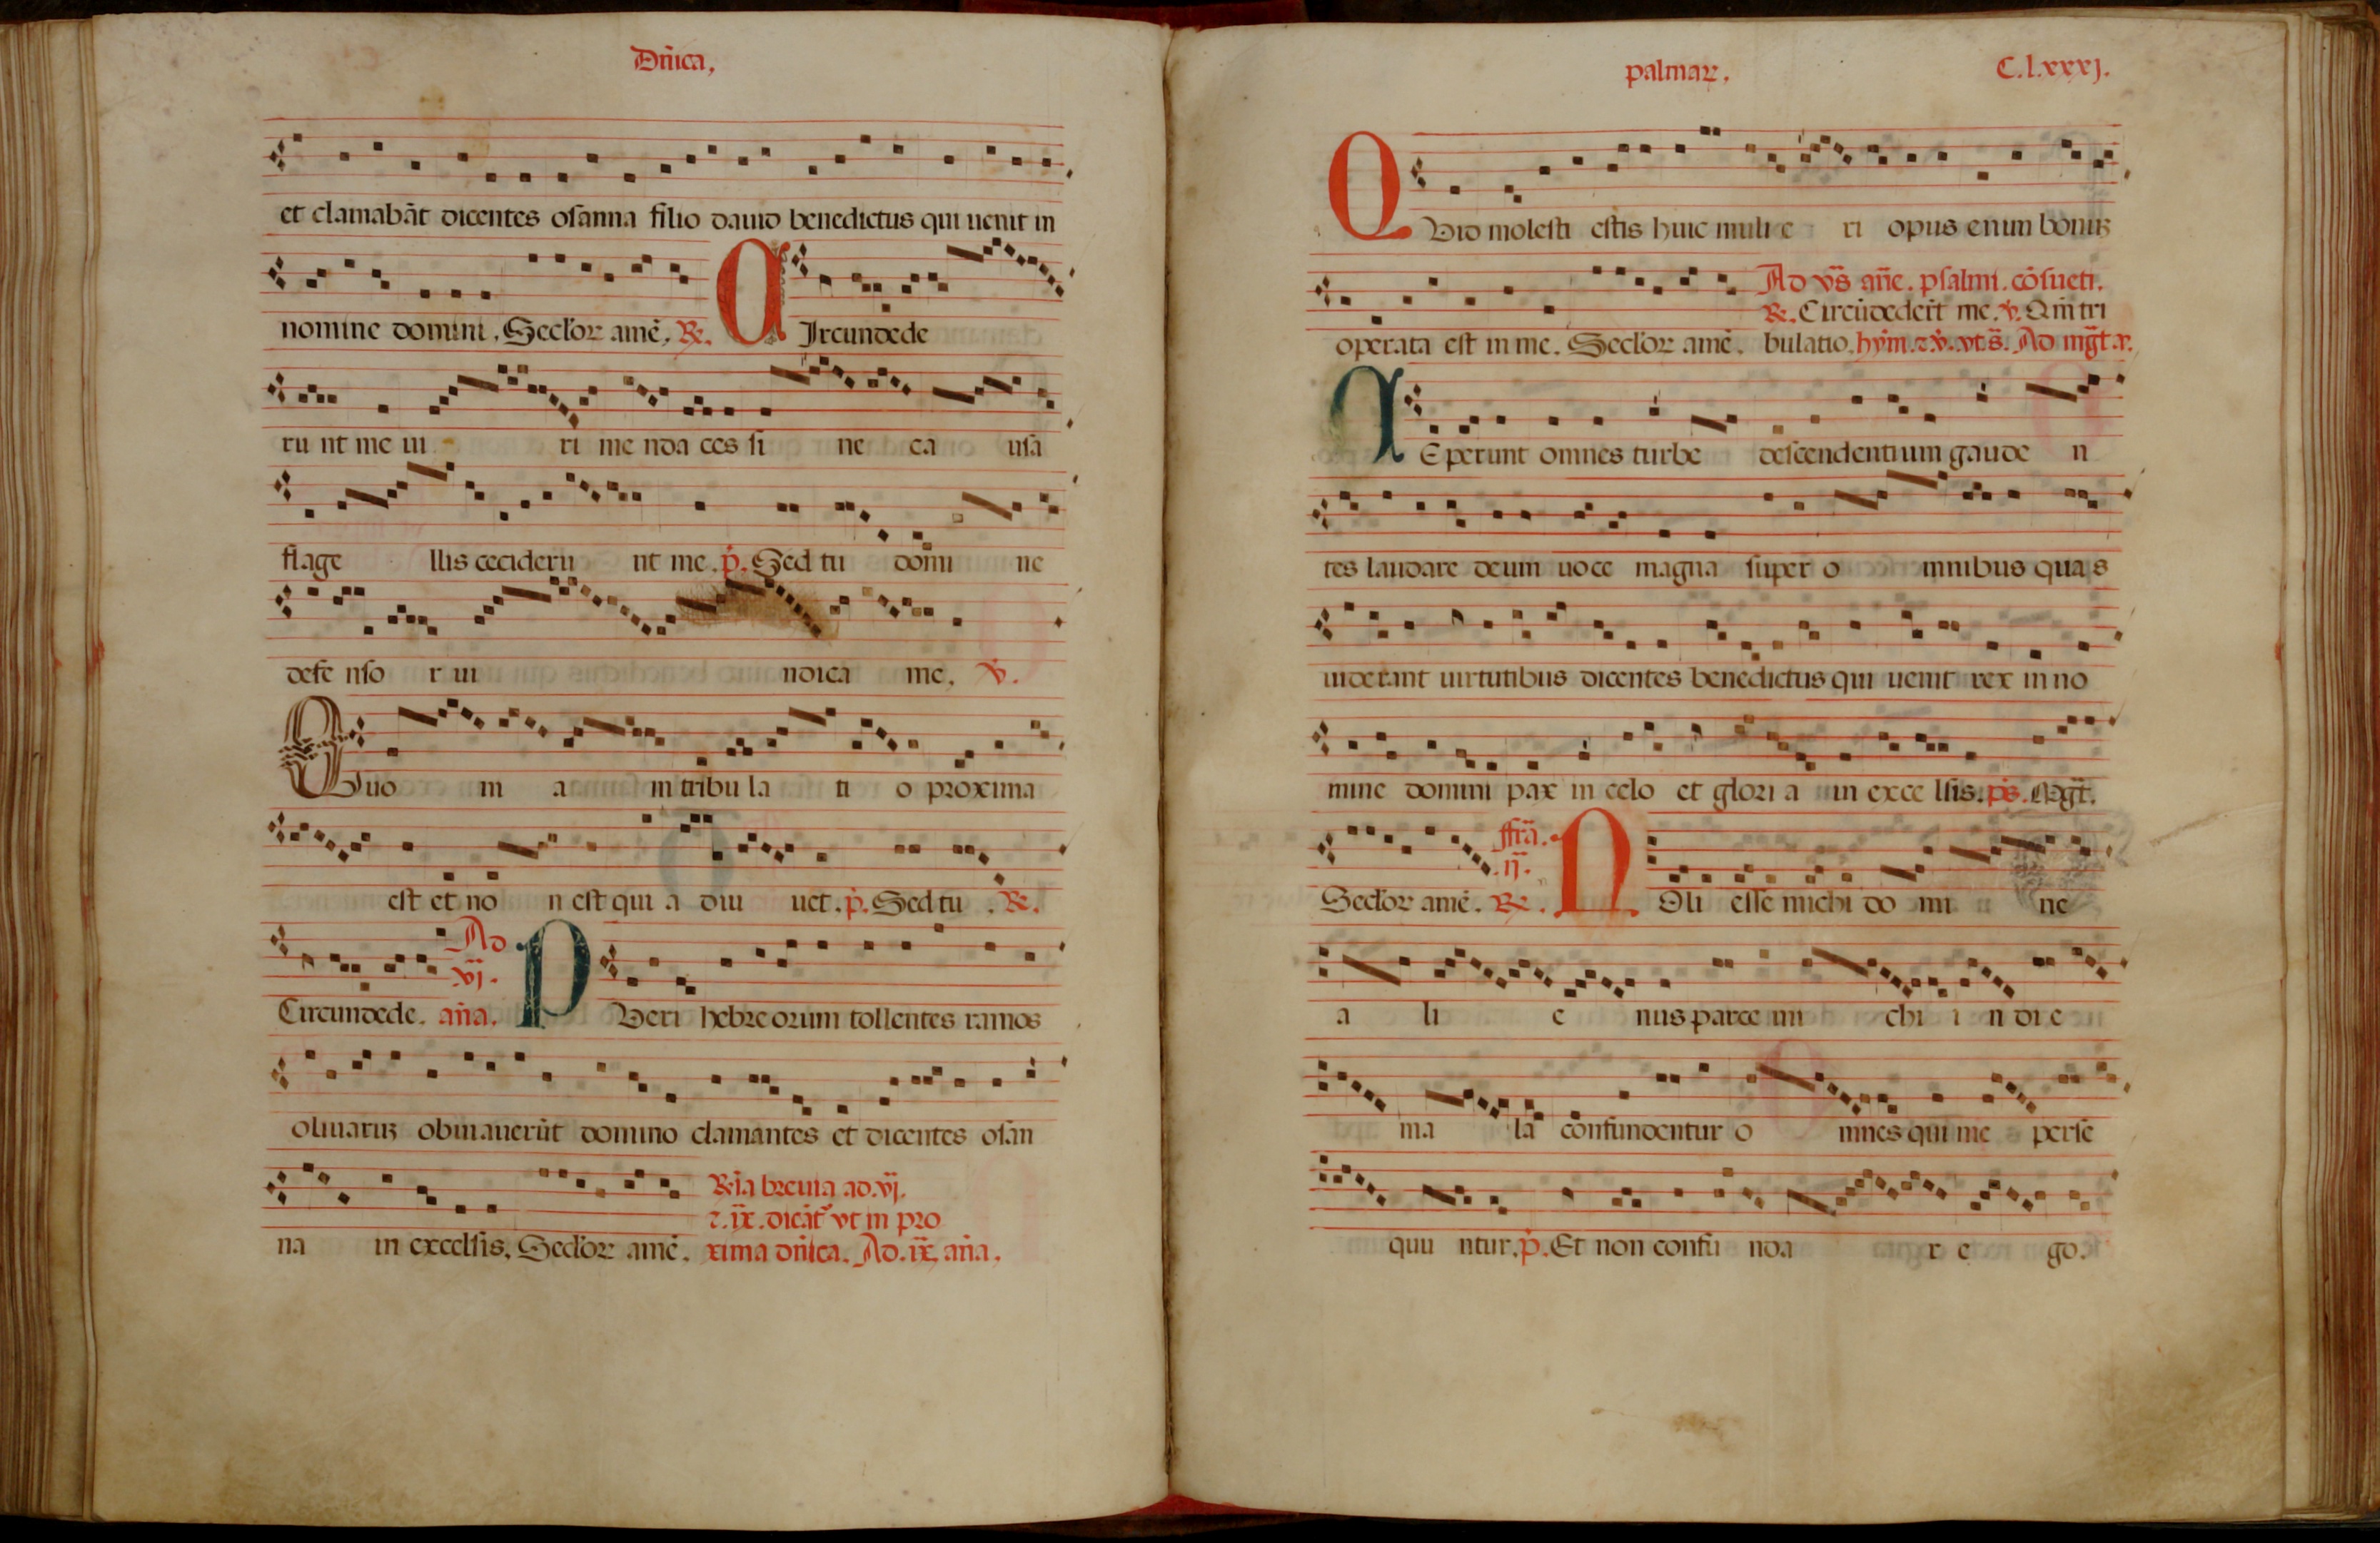 Dñica,
et clamabãt dicentes osanna filio dauid benedictus qui uenit in
nomine domini. Seclor̃ amẽ. R̃. CIrcundede
ru nt me ui ri me nda ces si ne ca usa
flage llis cecideru nt me. p̃. Sed tu domi ne
defe nso r ui ndica me. ṽ.
QVuo ni a in tribu la ti o proxima
est et no n est qui a diu uet. p̃. Sed tu. R̃.
Circundede. Ad .vj. aña. PVeri hebreorum tollentes ramos
oliuaruʒ obuiauerũt domino clamantes et dicentes osan
na in excelsis. Seclor̃ amẽ. R̃ia breuia ad .vj.
⁊ .ix. dicãt᷑ vt in pro
xima dñica. Ad .ix. aña.
palmar. C.l.xxxj.
QVid molesti estis huic muli e ri opus enim bonuʒ
operata est in me. Seclor̃ amẽ. Ad vs̃ añe. psalmi. cõsueti.
R̃. Circũdederũt me. ṽ. Qm̃ tri
bulatio. hỹm. ⁊ ṽ. vt. s̃. Ad mg̃t. a.
CEperunt omnes turbe descendentium gaude n
tes laudare deum uoce magna super o mnibus qua s
uiderant uirtutibus dicentes benedictus qui uenit rex in no
mine domini pax in celo et glori a in exce lsis. ps̃. Mg̃t.
Seclor̃ amẽ. ffr̃ã. .ij. R̃. NOli esse michi do mi ne
a li e nus parce mi chi i n di e
ma la confundentur o mnes qui me perse
quu ntur. p̃. Et non confu nda r e go.